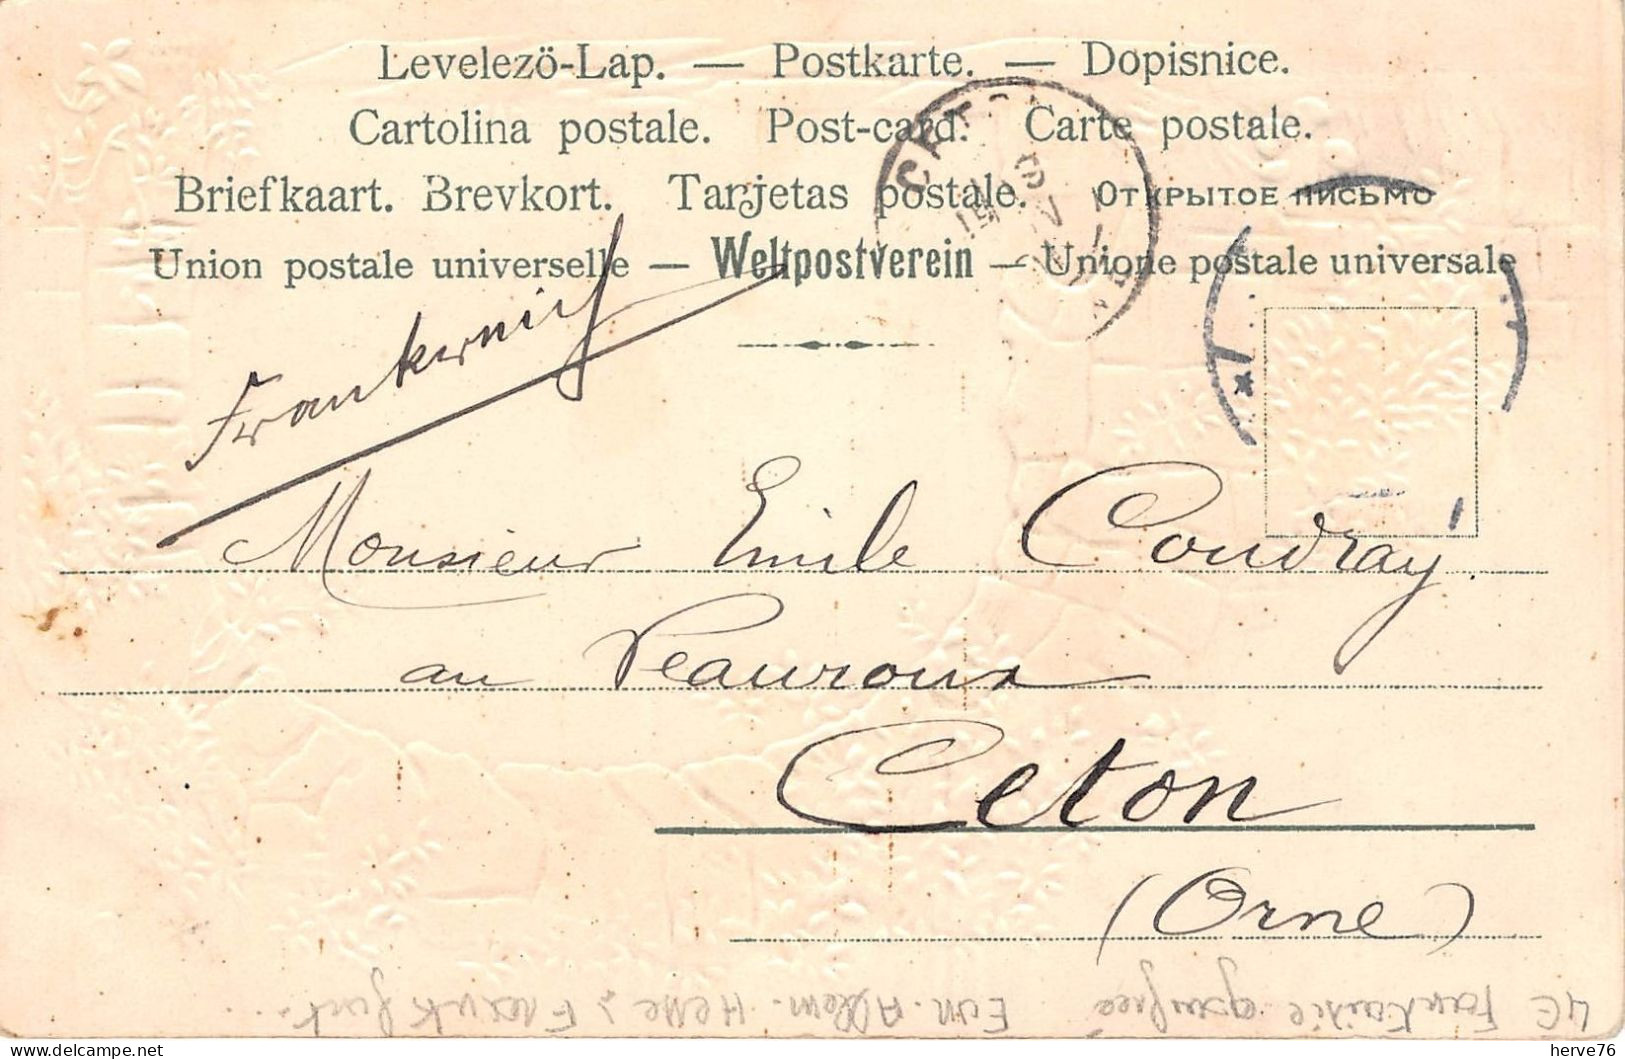 Levelező-Lap. — Postkarte. — Dopisnice.
Cartolina postale. Post-card. Carte postale.
Briefkaart. Brevkort. Tarjetas postale. Открытое письмо
Union postale universelle — Weltpostverein — Unione postale universale
CETON
Frankreich
Monsieur Emile Coudray
au Peauroux
Ceton
(Orne)
4€ Fantaisie gaufrée Eur. Allem. Hesse > Frankfurt...
herve76